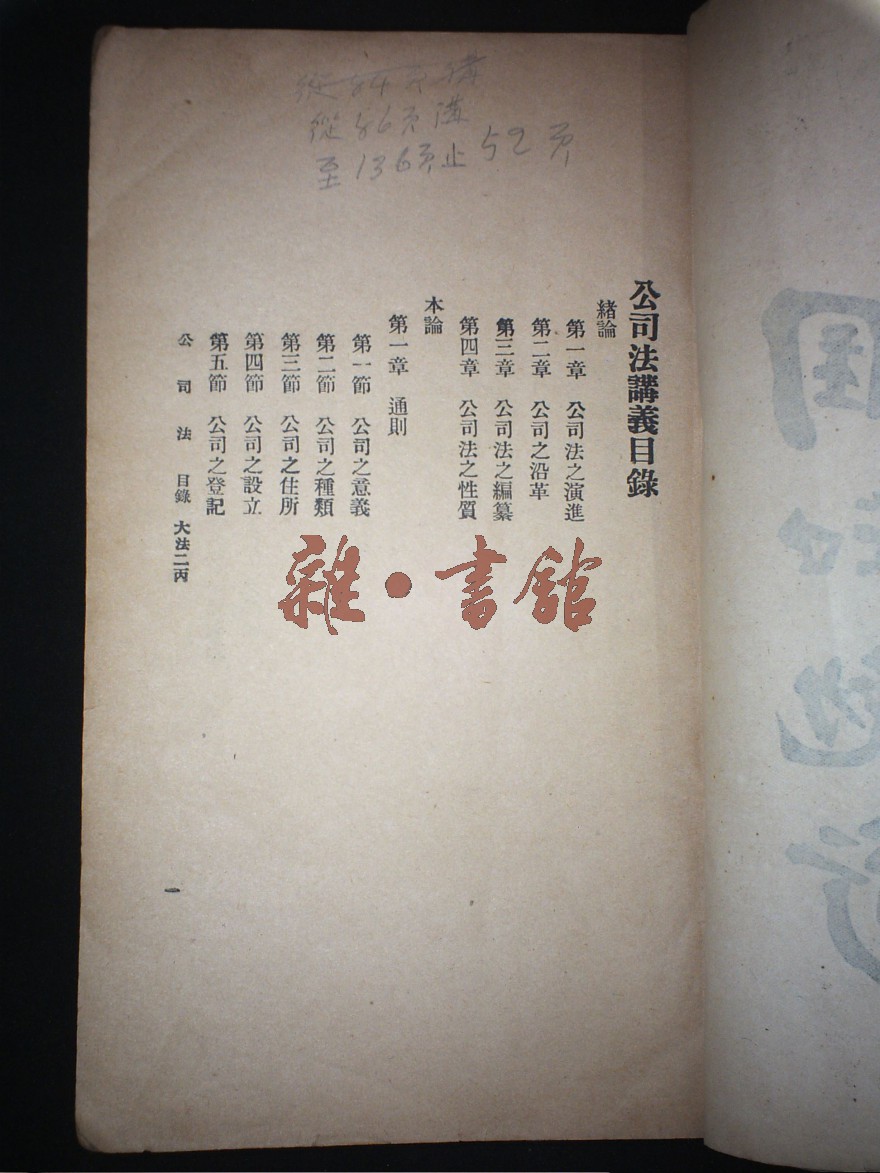 從86頁講
至136頁止 52頁
公司法講義目錄
緒論
第一章 公司法之演進
第二章 公司之沿革
第三章 公司法之編纂
第四章 公司法之性質
本論
第一章 通則
第一節 公司之意義
第二節 公司之種類
第三節 公司之住所
第四節 公司之設立
第五節 公司之登記
公司法 目錄 大法二丙
一
雜·書館